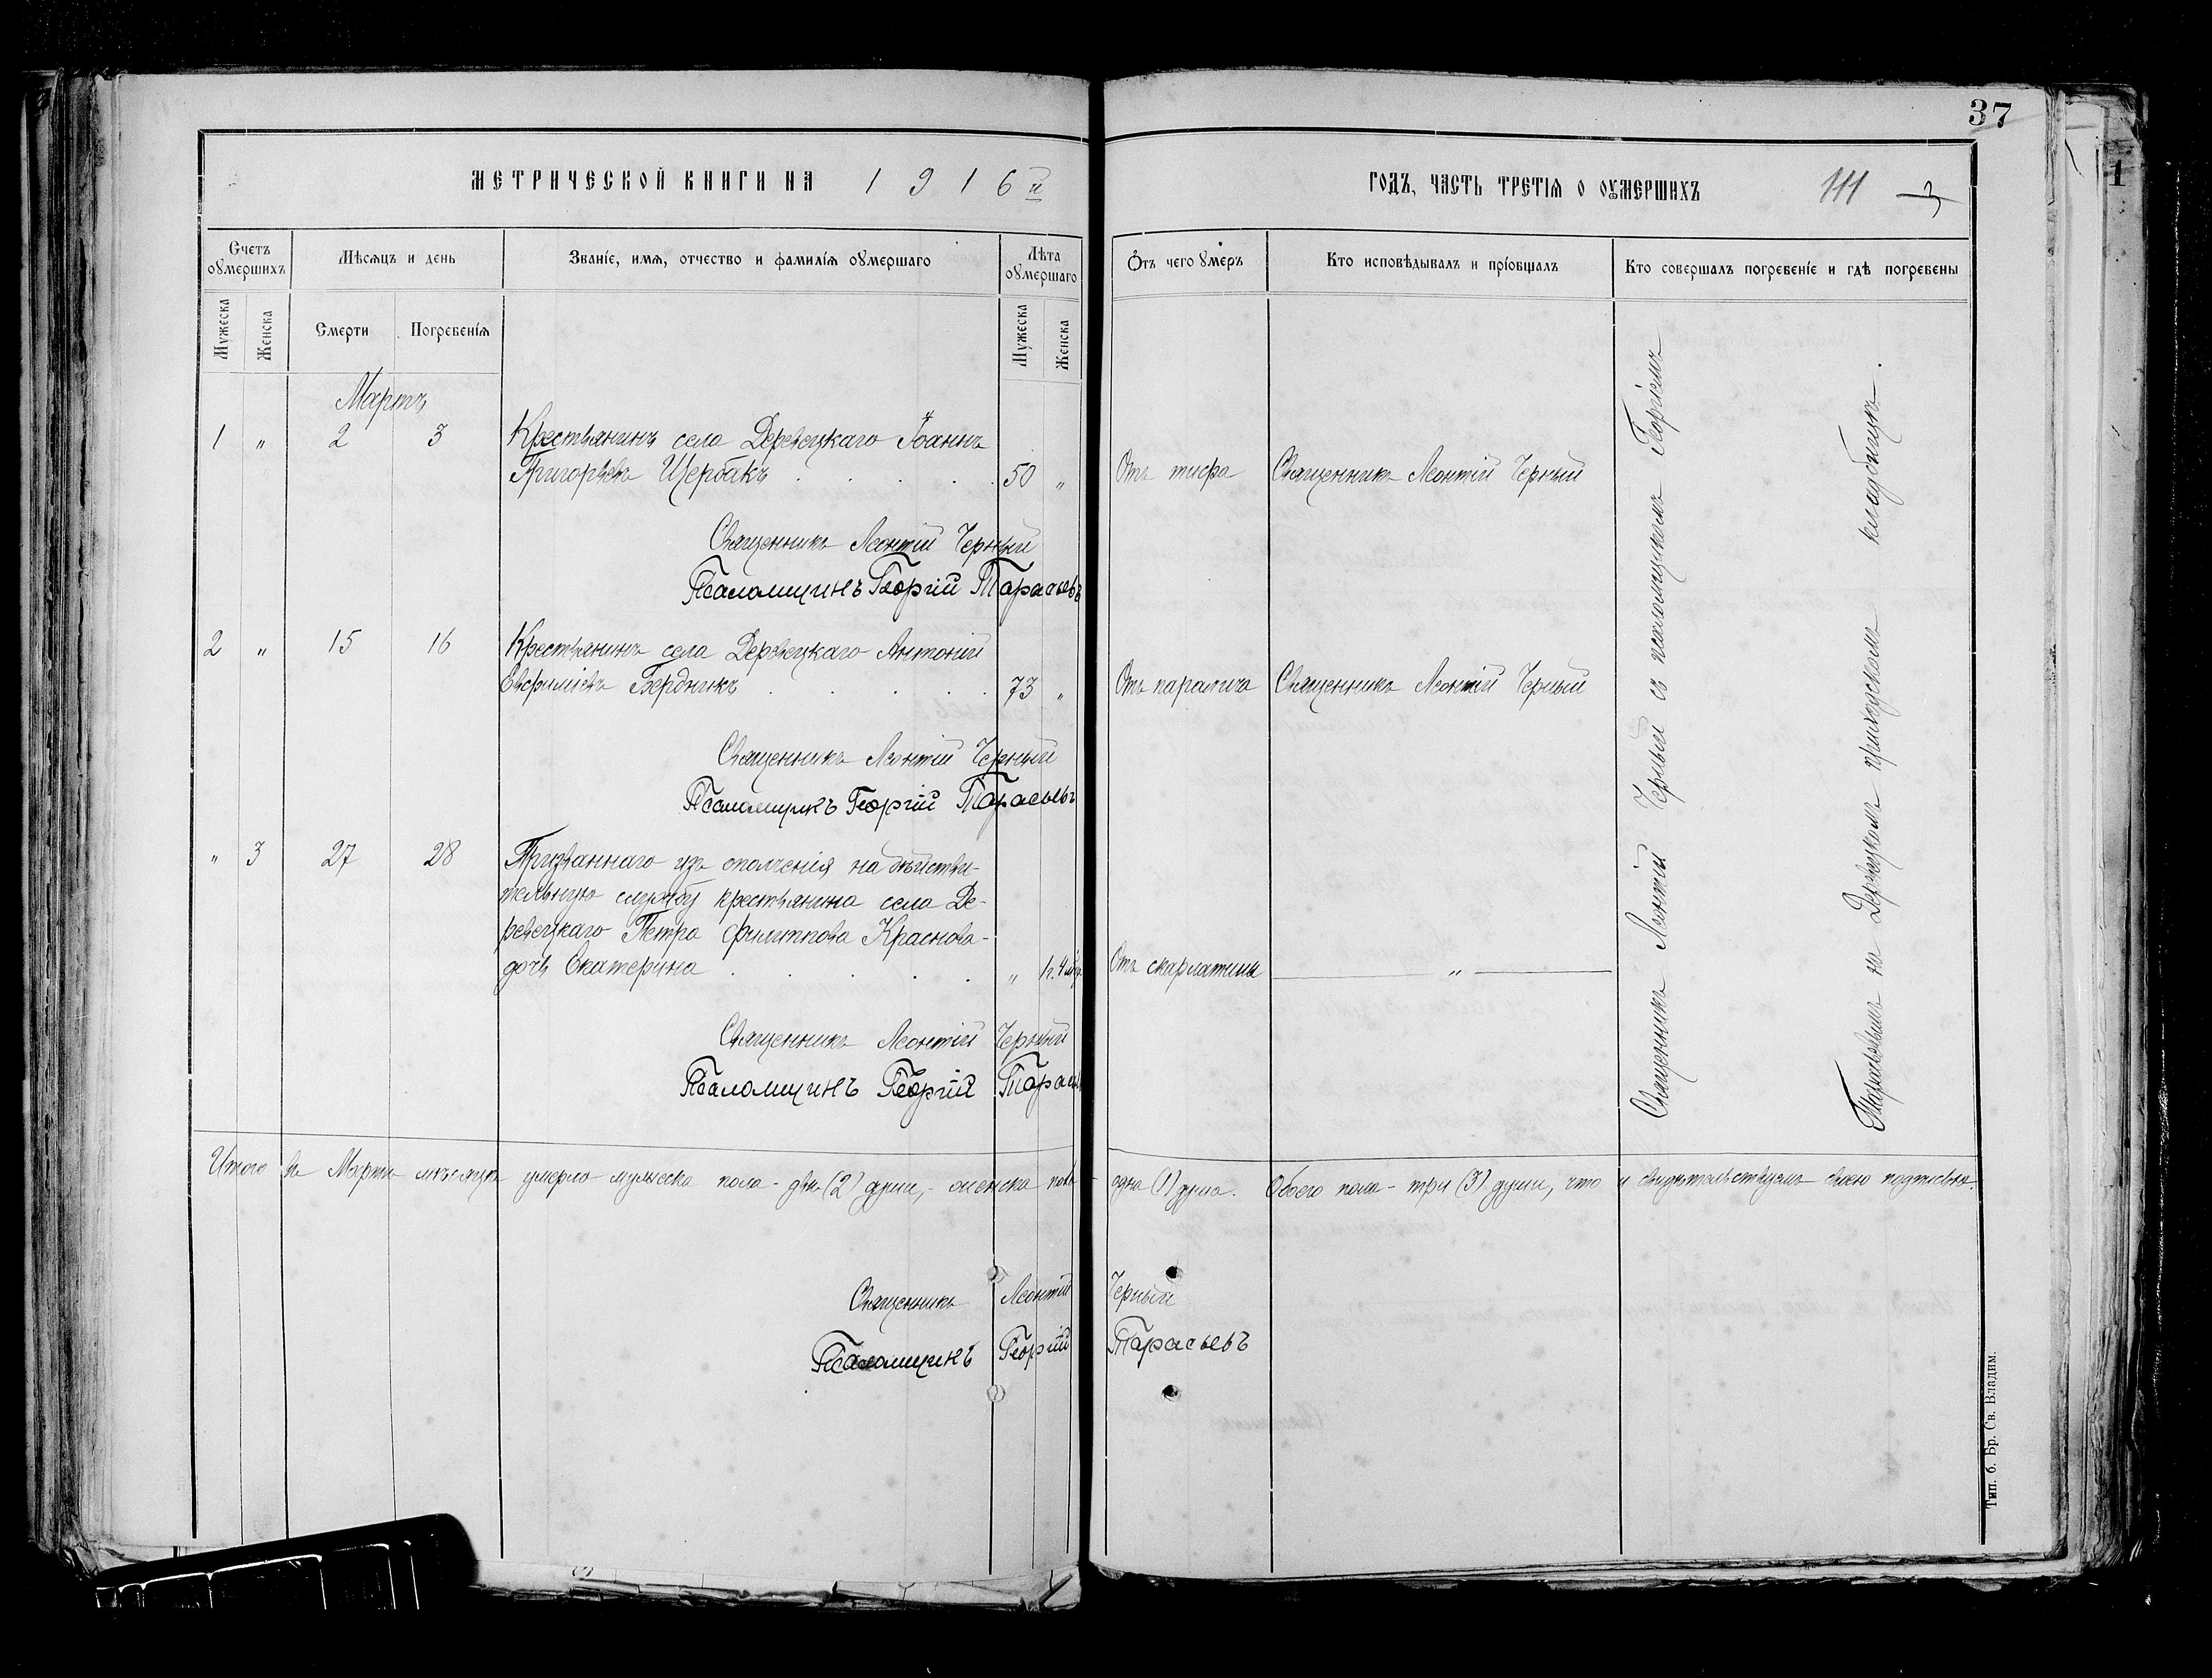 37
МЕТРИЧЕСКОЙ КНИГИ НА 1916й
ГОДЪ, ЧАСТЬ ТРЕТІЯ О ОУМЕРШИХЪ
111
Счетъ оумершихъ
Мѣсяцъ и день
Званіе, имя, отчество и фамилія оумершаго
Лѣта оумершаго
Отъ чего умеръ
Кто исповѣдывалъ и пріобщалъ
Кто совершалъ погребеніе и гдѣ погребены
Мужеска
Женска
Смерти
Погребенія
Мужеска
Женска
Мартъ
1 „ 2 3 Крестьянинъ села Деревецкаго Іоаннъ
Григорьевъ Щербакъ . . . . . 50 „ Отъ тифа Священникъ Леонтій Черный
Священникъ Леонтій Черный
Псаломщикъ Георгій Тарасьевъ
2 „ 15 16 Крестьянинъ села Деревецкаго Антоній
Евфиміевъ Бердникъ . . . . . 73 „ Отъ паралича Священникъ Леонтій Черный
Священникъ Леонтій Черный
Псаломщикъ Георгій Тарасьевъ
„ 3 27 28 Призваннаго изъ ополченія на дѣйстви-
тельную службу крестьянина села Де-
ревецкаго Петра Филиппова Краснова-
дочь Екатерина . . . . . „ 1г. 4 мѣс. Отъ скарлатины „
Священникъ Леонтій Черный
Псаломщикъ Георгій Тарась
Священникъ Леонтій Черный съ псаломщикомъ Георгіемъ
Тарасьевымъ на Деревецкомъ приходскомъ кладбищѣ.
Итого въ Мартѣ мѣсяцѣ умерло мужеска пола - двѣ (2) души, - женска пола - одна (1) душа. Обоего пола - три (3) души, что и свидѣтельствуемъ своею подписью.
Священникъ Леонтій Черный
Псаломщикъ Георгій Тарасьевъ
Тип. б. Бр. Св. Владим.
1